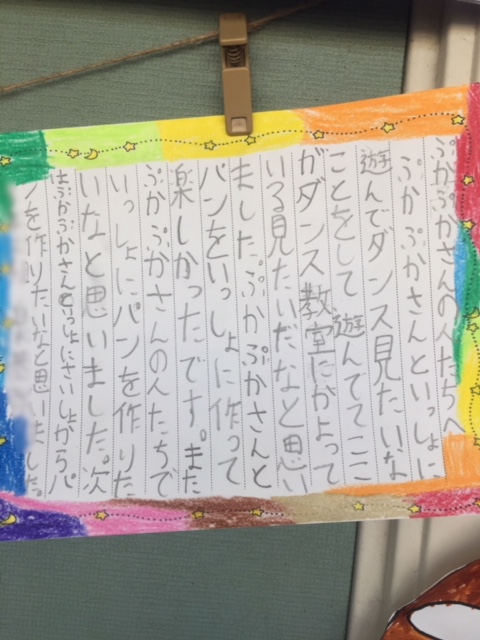 ぷかぷかさんの人たちへ
ぷかぷかさんといっしょに
遊んでダンス見たいな
ことをして遊んでてここ
がダンス教室にかよって
いる見たいだなと思い
ました。ぷかぷかさんと
パンをいっしょに作って
楽しかったです。また
ぷかぷかさんの人たちで
いっしょにパンを作りた
いなと思いました。次
はぷかぷかさんといっしょにさいしょからパ
ンを作りたいなと思いました。